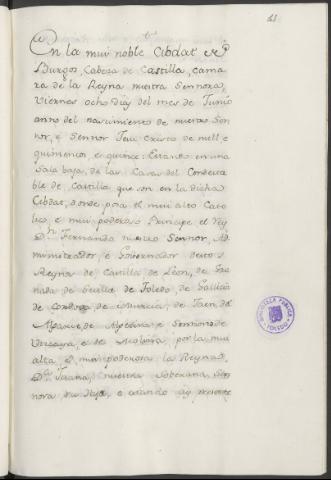 En la mui noble Cibdat de
Burgos, Cabeza de Castilla, cama
ra de la Reyna nuestra Sennora,
Viernes ocho dias del mes de Junio
anno del nascimiento de nuestro Sen
nor, e Sennor Jesu Cristo de mill e
quinientos, e quince Estando en una
Sala baja, de las Casas del Condesta
ble de Castilla que son en la dicha
Cibdat, donde posa el mui alto Cato
lico e mui poderoso Principe el Rey
Dn. Fernando nuestro Sennor, Ad
ministrador, e Gobernador destos
Reynos de Castilla de Leon, de Gra
nada de Sevilla de Toledo de Gallicia
de Cordoba de Murcia, de Jaen, del
Algarve, de Algecira e Sennorio de
Vizcaya, e de Molina, por la mui
alta, e mui poderosa la Reyna
Dª. Juana, nuestra Soberana, Sen
nora su Hija, e estando ay presente
BIBLIOTECA PUBLICA
TOLEDO